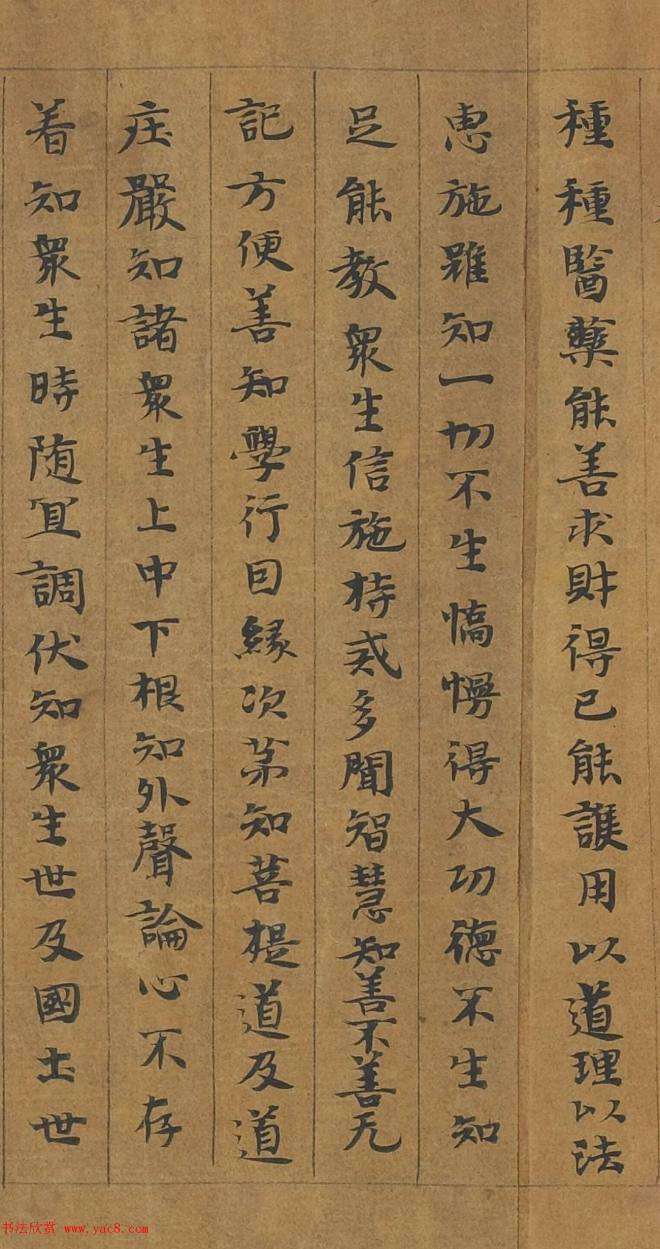 種種醫藥能善求財得已能護用以道理以法
恵施雖知一切不生憍慢得大功德不生知
足能教衆生信施持戒多聞智慧知善不善无
記方便善知學行因緣次苐知菩提道及道
庄嚴知諸衆生上中下根知外聲論心不存
着知衆生時随宜調伏知衆生世及國土世
书法欣赏 www.yac8.com